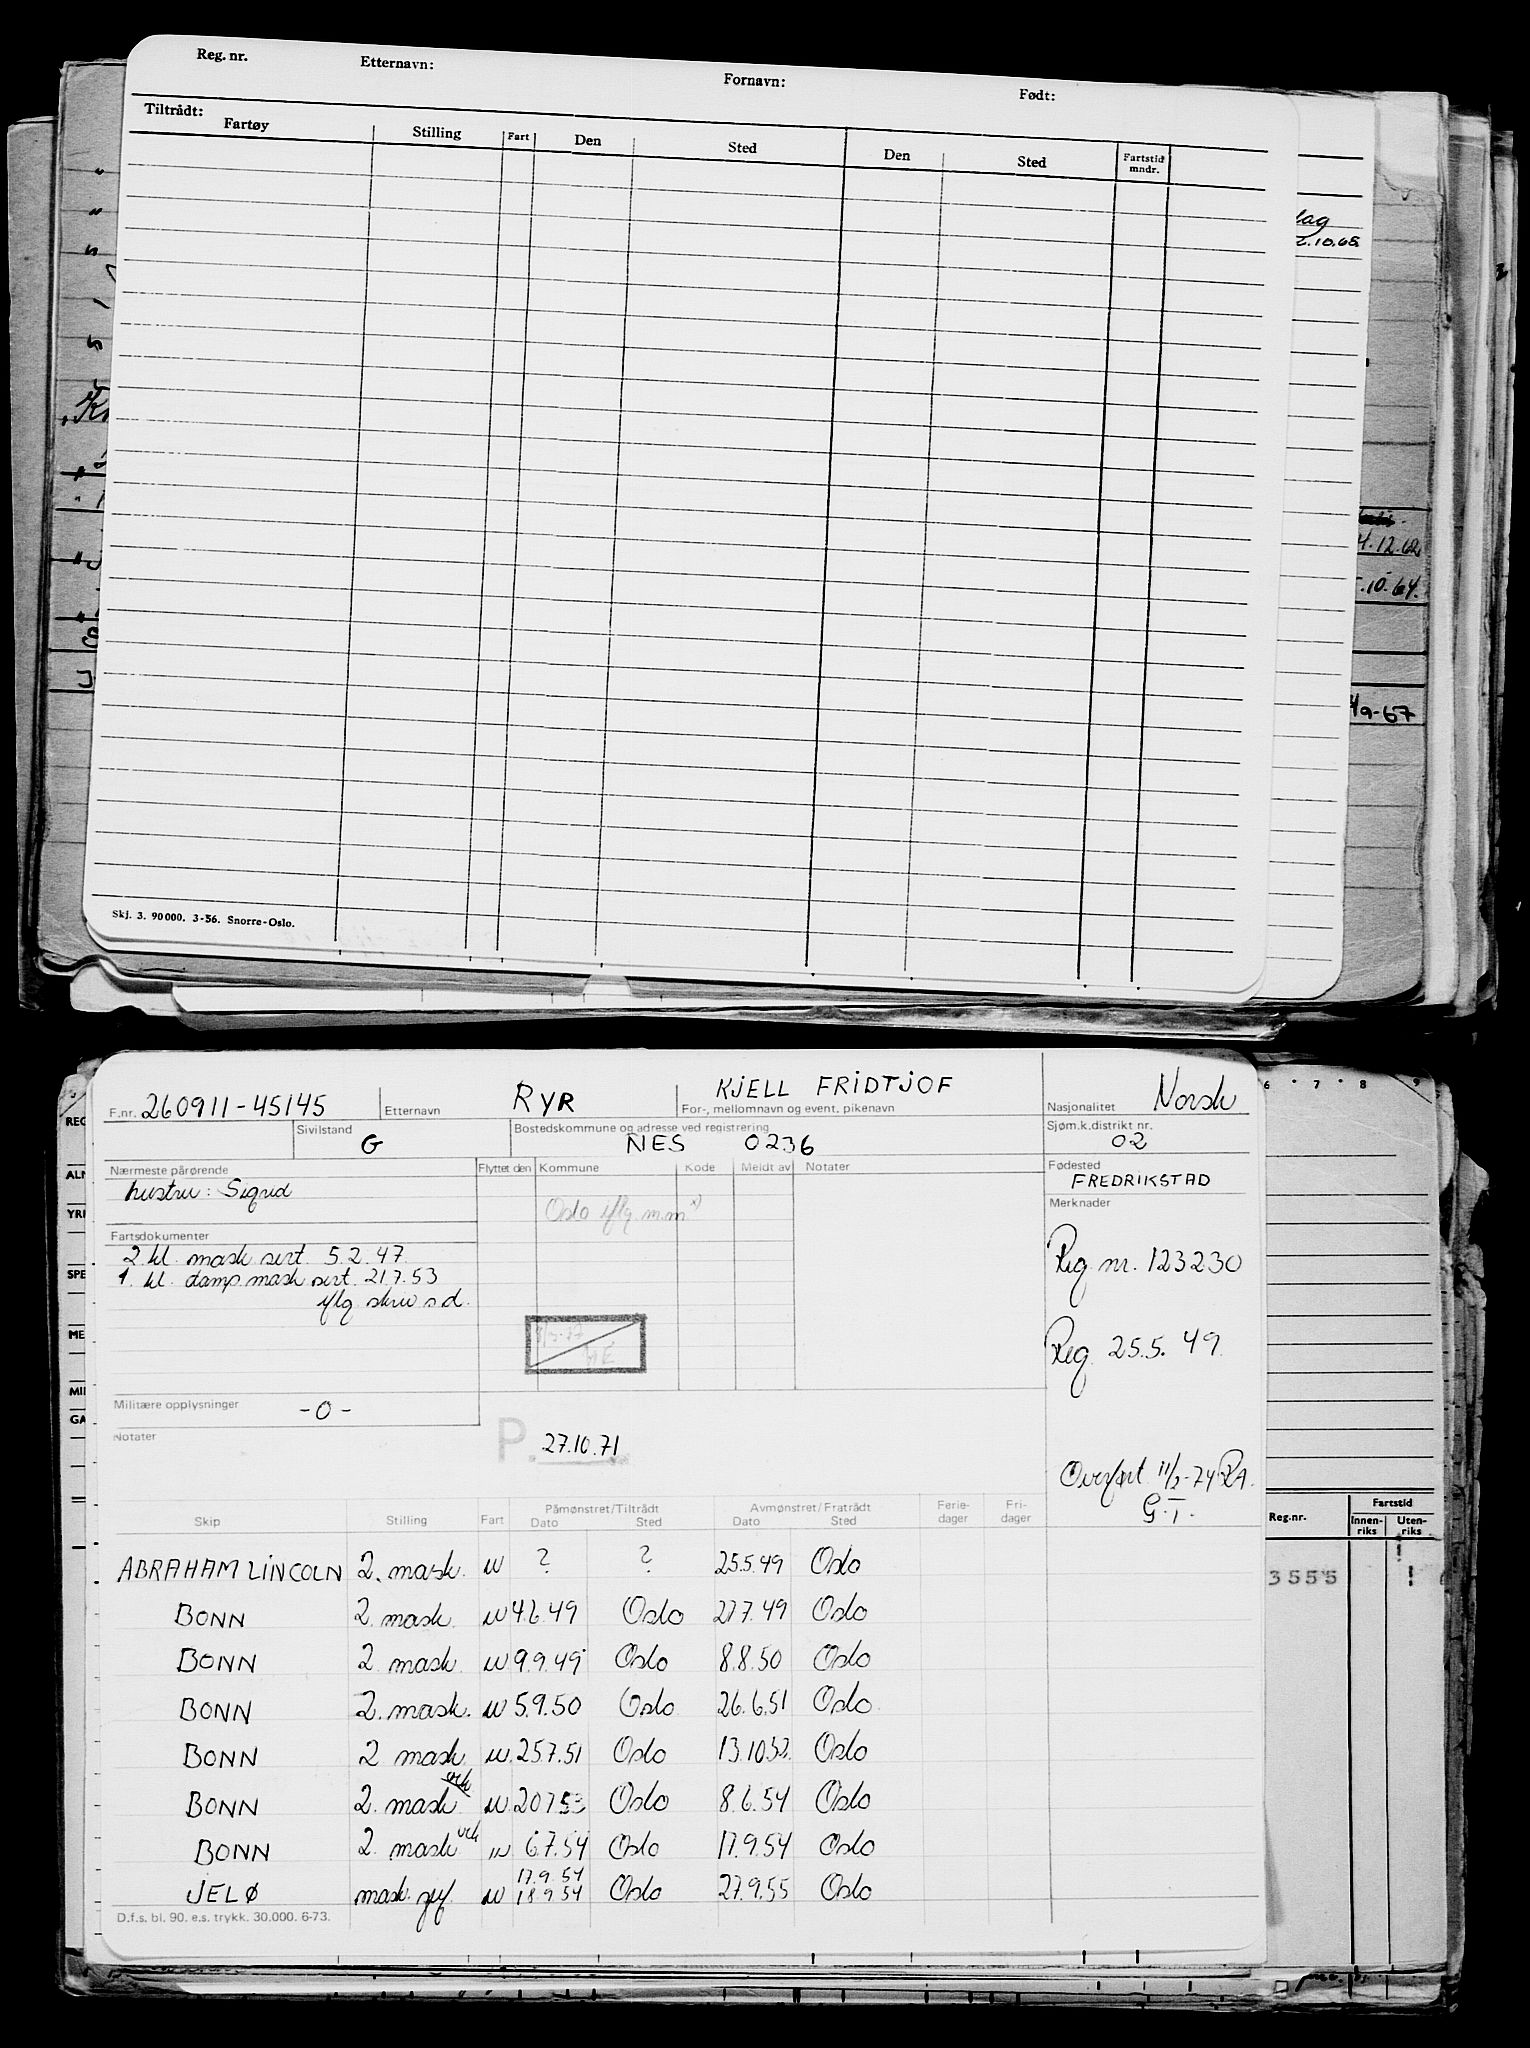 Reg. nr. Etternavn: Fornavn: Født:
Tiltrådt:
Fartøy Stilling Fart Den Sted Den Sted Fartstid mndr.
lag
.10.68
4.12.62
.10.64.
/9-67
Skj. 3. 90000. 3-56. Snorre-Oslo.
6 · 7 · 8 9
F.nr. 260911-45145 Etternavn RYR KJELL FRIDTJOF
For-, mellomnavn og event. pikenavn
Nasjonalitet Norsk
Sivilstand G
Bostedskommune og adresse ved registrering
NES 0236
Sjøm.k.distrikt nr.
02
Nærmeste pårørende
hustru: Sigrid
Flyttet den Kommune Kode Meldt av Notater
Oslo iflg. m.m x)
Fødested
FREDRIKSTAD
Merknader
Fartsdokumenter
2 kl. mask sert. 5.2.47
1. kl. damp.mask sert. 21.7.53
iflg skriv s.d.
Reg nr. 123230
Reg. 25.5.49
Militære opplysninger -0-
Notater
P. 27.10.71
Overført 11/2-74 RA.
G.T.
Skip Stilling Fart Påmønstret/Tiltrådt Dato Sted Avmønstret/Fratrådt Dato Sted Ferie-dager Fri-dager
ABRAHAM LINCOLN 2. mask. u ? ? 25.5.49 Oslo
BONN 2. mask. u 4.6.49 Oslo 27.7.49 Oslo
BONN 2. mask. u 9.9.49 Oslo 8.8.50 Oslo
BONN 2. mask. u 5.9.50 Oslo 26.6.51 Oslo
BONN 2 mask. u. 25.7.51 Oslo 13.10.52. Oslo
BONN 2. mask u. 20.7.53 Oslo 8.6.54 Oslo
BONN 2. mask u 6.7.54 Oslo 17.9.54 Oslo
17.9.54
JELØ mask. u 18.9.54 Oslo 27.9.55 Oslo
D.f.s. bl. 90. e.s. trykk. 30.000. 6-73.
REG
ALM
YRK
SPE
ME
MIL
GA
Reg.nr. Fartstid
Innen-riks Uten-riks
3555